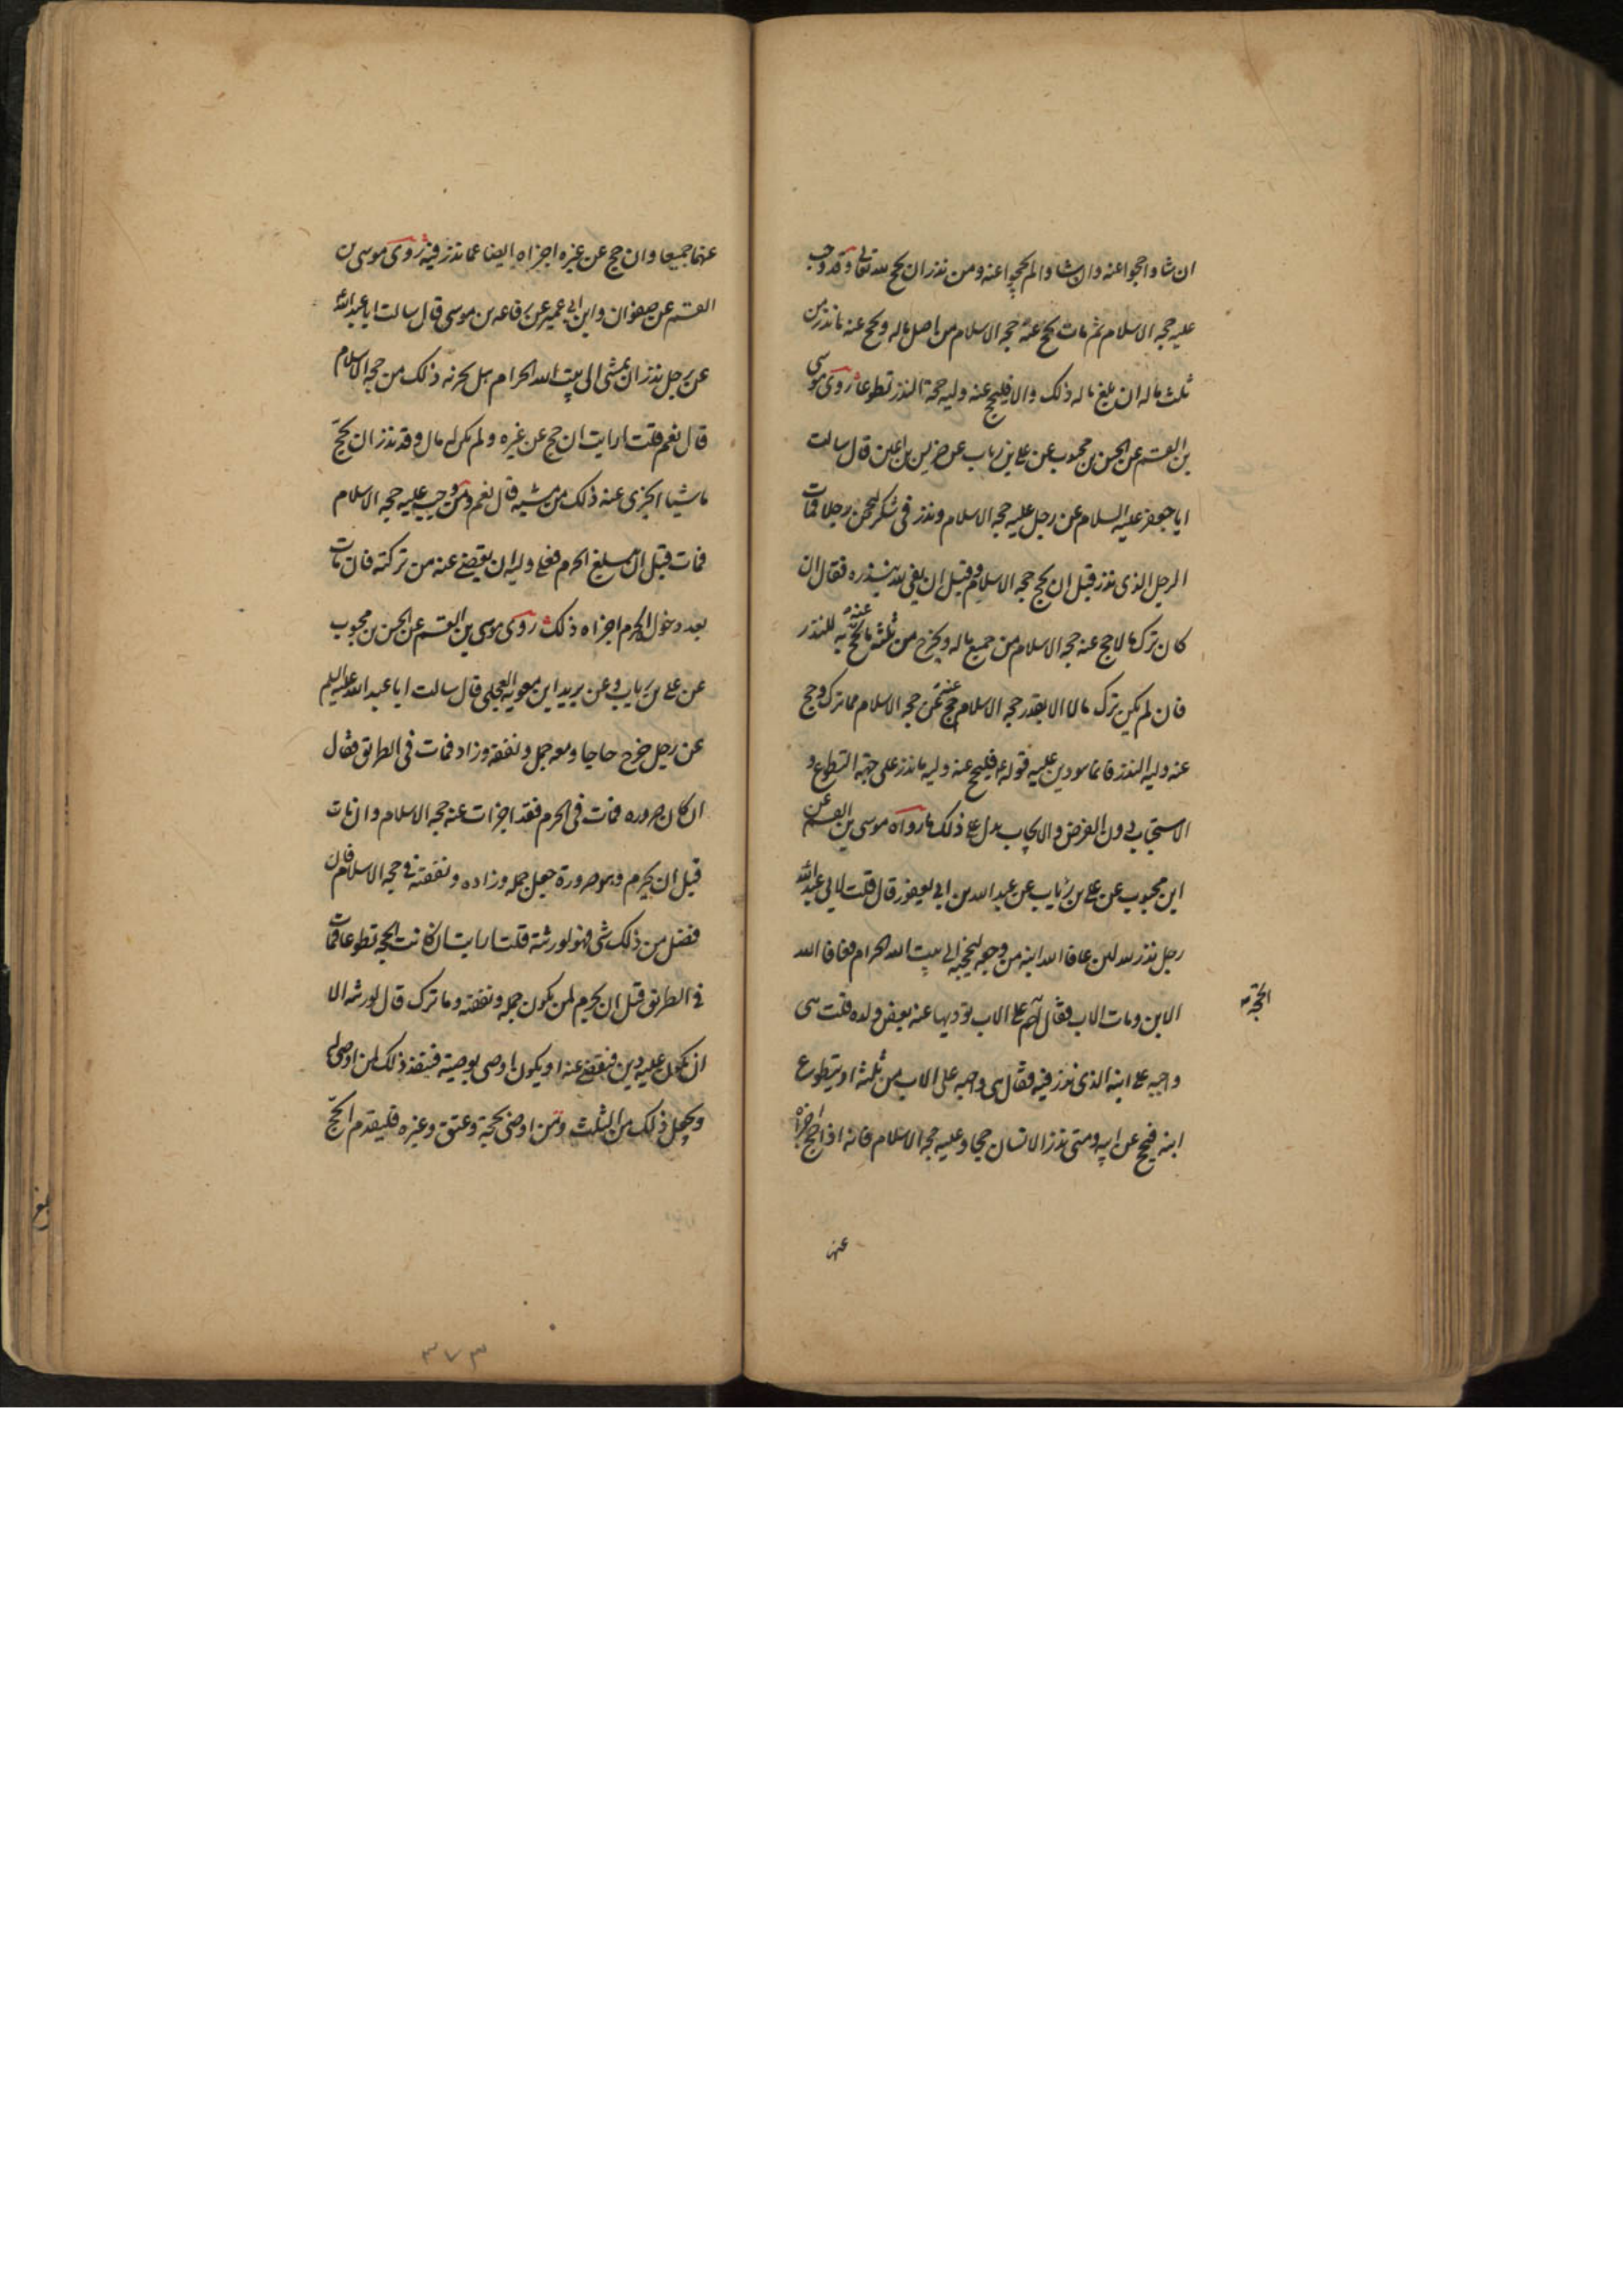 ان شاوا حجوا عنه وان شاوا لم يحجوا عنه ومن نذر ان يحج لله تعالى وقد وجب
عليه حجه الاسلام ثم مات يحج عنه حجه الاسلام من اصل ماله ويحج عنه ما نذر من
ثلث ماله ان بلغ ماله ذلك والا فليحج عنه وليه حجة النذر تطوعا روى موسى
بن القسم عن الحسن بن محبوب عن على بن رياب عن ضريس بن اعين قال سالت
ابا جعفر عليه السلام عن رجل عليه حجه الاسلام ونذر فى شكر ليحجن رجلا فمات
الرجل الذى نذر قبل ان يحج حجه الاسلام وقبل ان يفى لله بنذره فقال ان
كان ترك مالا حج عنه حجه الاسلام من جميع ماله ويخرج من ثلثه ما يحج به عنه للنذر
فان لم يكن ترك مالا الا بقدر حجه الاسلام حج عنه حجه الاسلام مما ترك وحج
عنه وليه النذر فانما هو دين عليه قوله ع فليحج عنه وليه ما نذر على جهة التطوع و
الاستحباب دون الفرض والايجاب يدل على ذلك ما رواه موسى بن القسم عن
ابن محبوب عن على بن رئاب عن عبد الله بن ابى يعفور قال قلت لابى عبد الله
رجل نذر لله لئن عافا الله ابنه من وجعه ليحجنه الى بيت الله الحرام فعافا الله
الابن ومات الاب فقال الحجة على الاب يوديها عنه بعض ولده قلت هى
واجبه على ابنه الذى نذر فيه فقال هى واجبه على الاب من ثلثه او يتطوع
ابنه فيحج عن ابيه ومتى نذر الانسان حجا وعليه حجه الاسلام فانه اذا حج اجزاه
الحجة
عنهما
عنهما جميعا وان حج عن غيره اجزاه ايضا عما نذر فيه روى موسى بن
القسم عن صفوان وابن ابى عمير عن رفاعه بن موسى قال سالت ابا عبد الله
عن رجل نذر ان يمشى الى بيت الله الحرام هل يجزيه ذلك من حجه الاسلام
قال نعم قلت ارايت ان حج عن غيره ولم يكن له مال وقد نذر ان يحج
ماشيا ايجزى عنه ذلك من مشيه قال نعم ومن وجب عليه حجه الاسلام
فمات قبل ان يبلغ الحرم فعلى وليه ان يقضى عنه من تركته فان مات
بعد دخول الحرم اجزاه ذلك روى موسى بن القسم عن الحسن بن محبوب
عن على بن رياب وعن بريد ابن معويه العجلى قال سالت ابا عبد الله عليه السلم
عن رجل خرج حاجا ومعه جمل ونفقة وزاد فمات فى الطريق فقال
ان كان صروره فمات فى الحرم فقد اجزات عنه حجه الاسلام وان مات
قبل ان يحرم وهو صرورة جعل جمله وزاده ونفقته فى حجه الاسلام فان
فضل من ذلك شى فهو لورثته قلت ارايت ان كانت الحجه تطوعا فمات
فى الطريق قبل ان يحرم لمن يكون جمله ونفقته وما ترك قال لورثته الا
ان يكون عليه دين فيقضى عنه او يكون اوصى بوصية فينفذ ذلك لمن اوصى له
ويجعل ذلك من الثلث ومن اوصى بحجة وعتق وغيره فليقدم الحج
٣٧٣